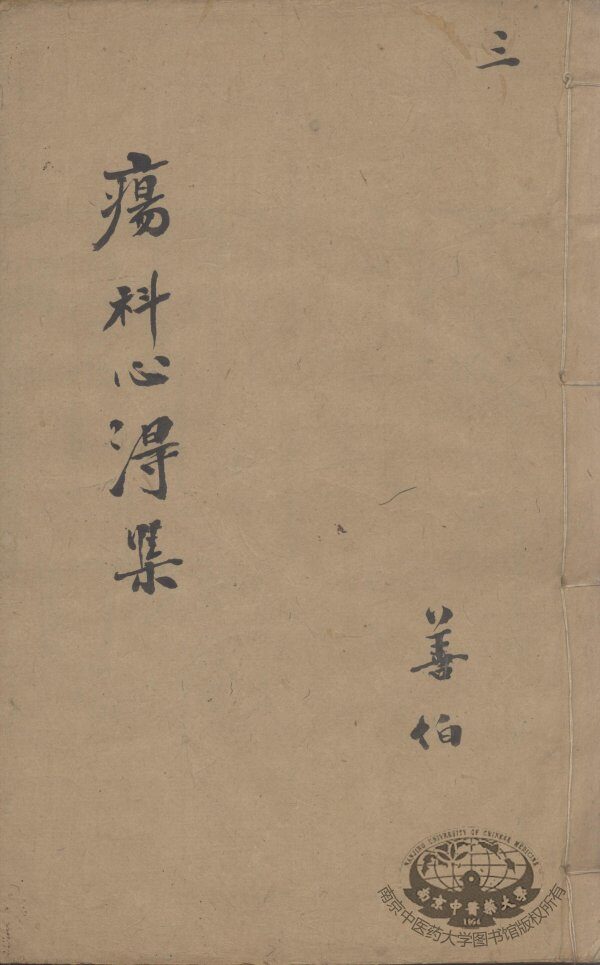 三
瘍科心得集
善伯
NANJING UNIVERSITY OF CHINESE MEDICINE
南京中醫藥大學
1954
南京中医药大学图书馆版权所有